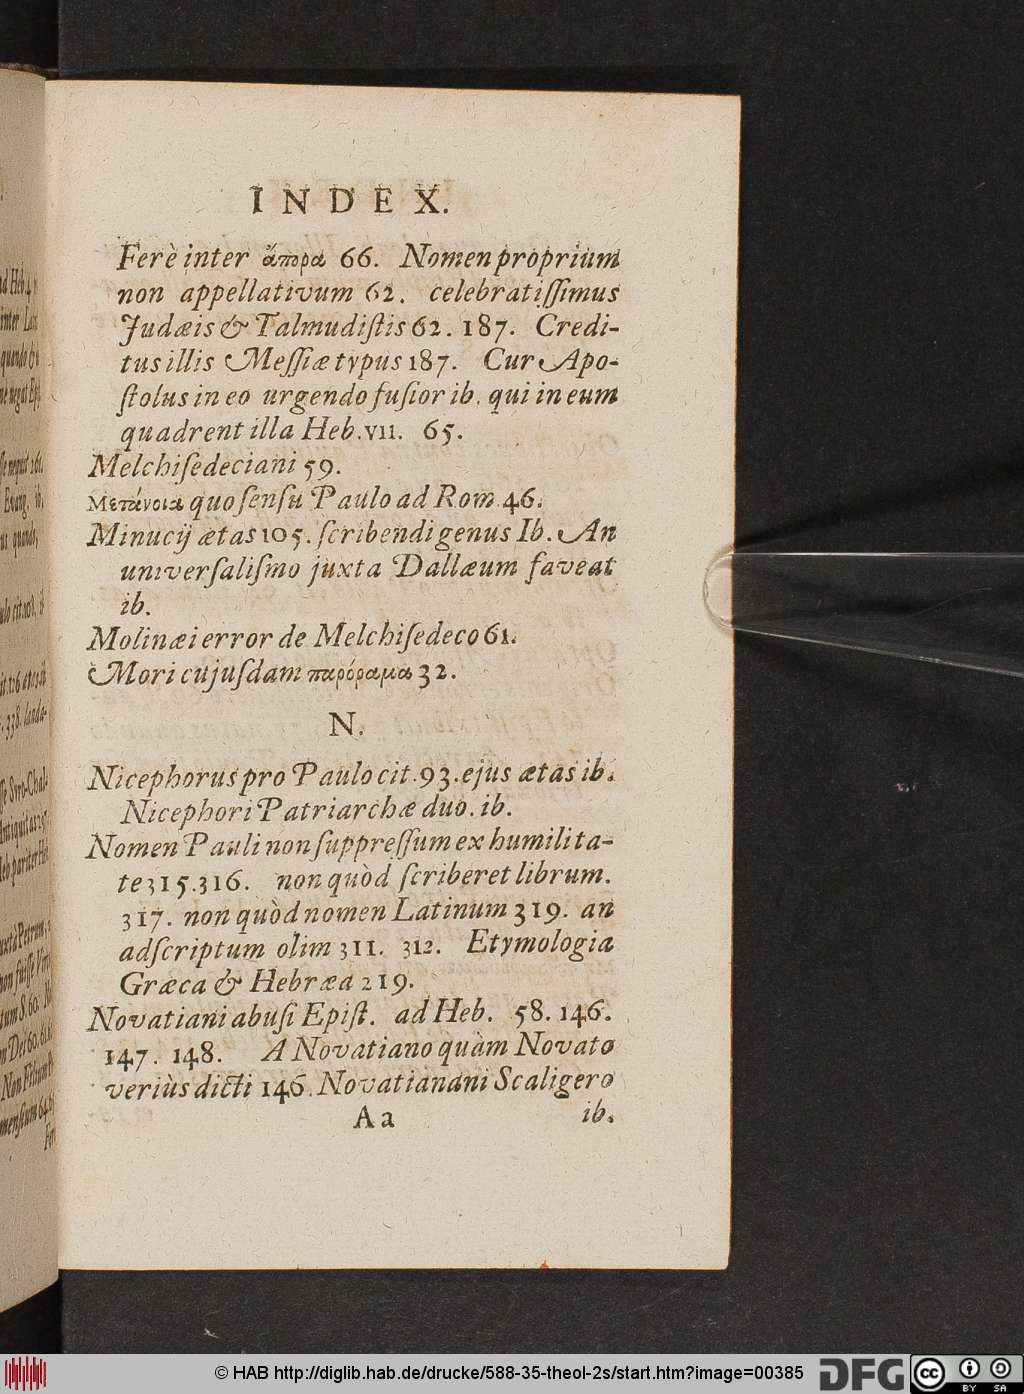 INDEX.
Ferè inter ἄπορα 66. Nomen proprium
non appellativum 62. celebratissimus
Judæis & Talmudistis 62. 187. Credi-
tus illis Messiæ typus 187. Cur Apo-
stolus in eo urgendo fusior ib. qui in eum
quadrent illa Heb. VII. 65.
Melchisedeciani 59.
Μετάνοια quo sensu Paulo ad Rom. 46.
Minucij ætas 105. scribendi genus Ib. An
universalismo juxta Dallæum faveat
ib.
Molinæi error de Melchisedeco 61.
Mori cujusdam παρόραμα 32.
N.
Nicephorus pro Paulo cit. 93. ejus ætas ib.
Nicephori Patriarchæ duo. ib.
Nomen Pauli non suppressum ex humilita-
te 315. 316. non quòd scriberet librum.
317. non quòd nomen Latinum 319. an
adscriptum olim 311. 312. Etymologia
Græca & Hebræa 219.
Novatiani abusi Epist. ad Heb. 58. 146.
147. 148. A Novatiano quàm Novato
veriùs dicti 146. Novatianani Scaligero
Aa ib.
© HAB http://diglib.hab.de/drucke/588-35-theol-2s/start.htm?image=00385
DFG
cc
BY SA